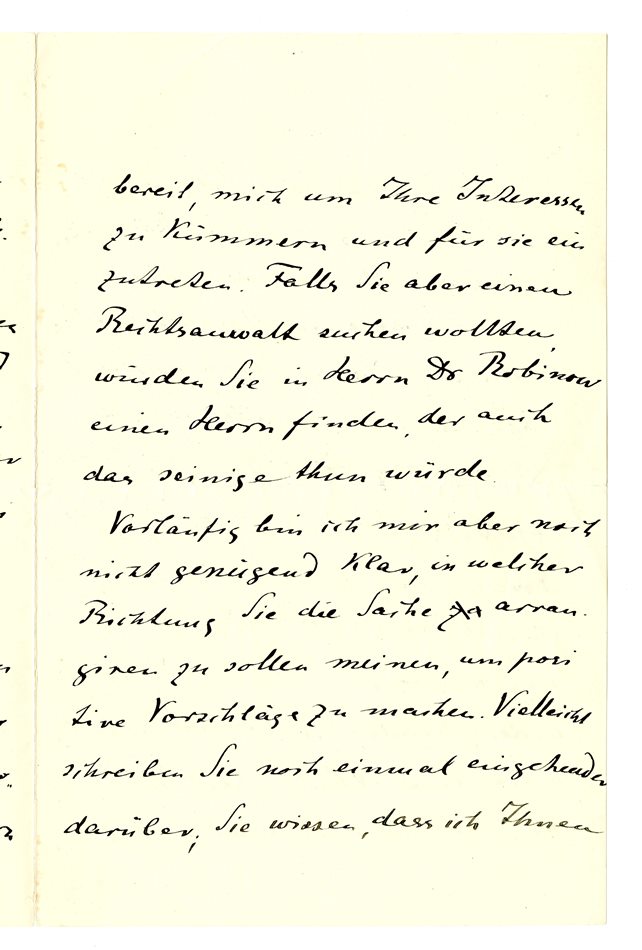 bereit, mich um Ihre Interessen
zu kümmern und für sie ein
zutreten. Falls Sie aber einen
Rechtsanwalt suchen wollten,
würden Sie in Herrn Dr Robinow
einen Herrn finden, der auch
das seinige thun würde
Vorläufig bin ich mir aber noch
nicht genügend klar, in welcher
Richtung Sie die Sache zu arran.
giren zu sollen meinen, um posi
tive Vorschläge zu machen. Vielleicht
schreiben Sie noch einmal eingehender
darüber; Sie wissen, dass ich Ihnen